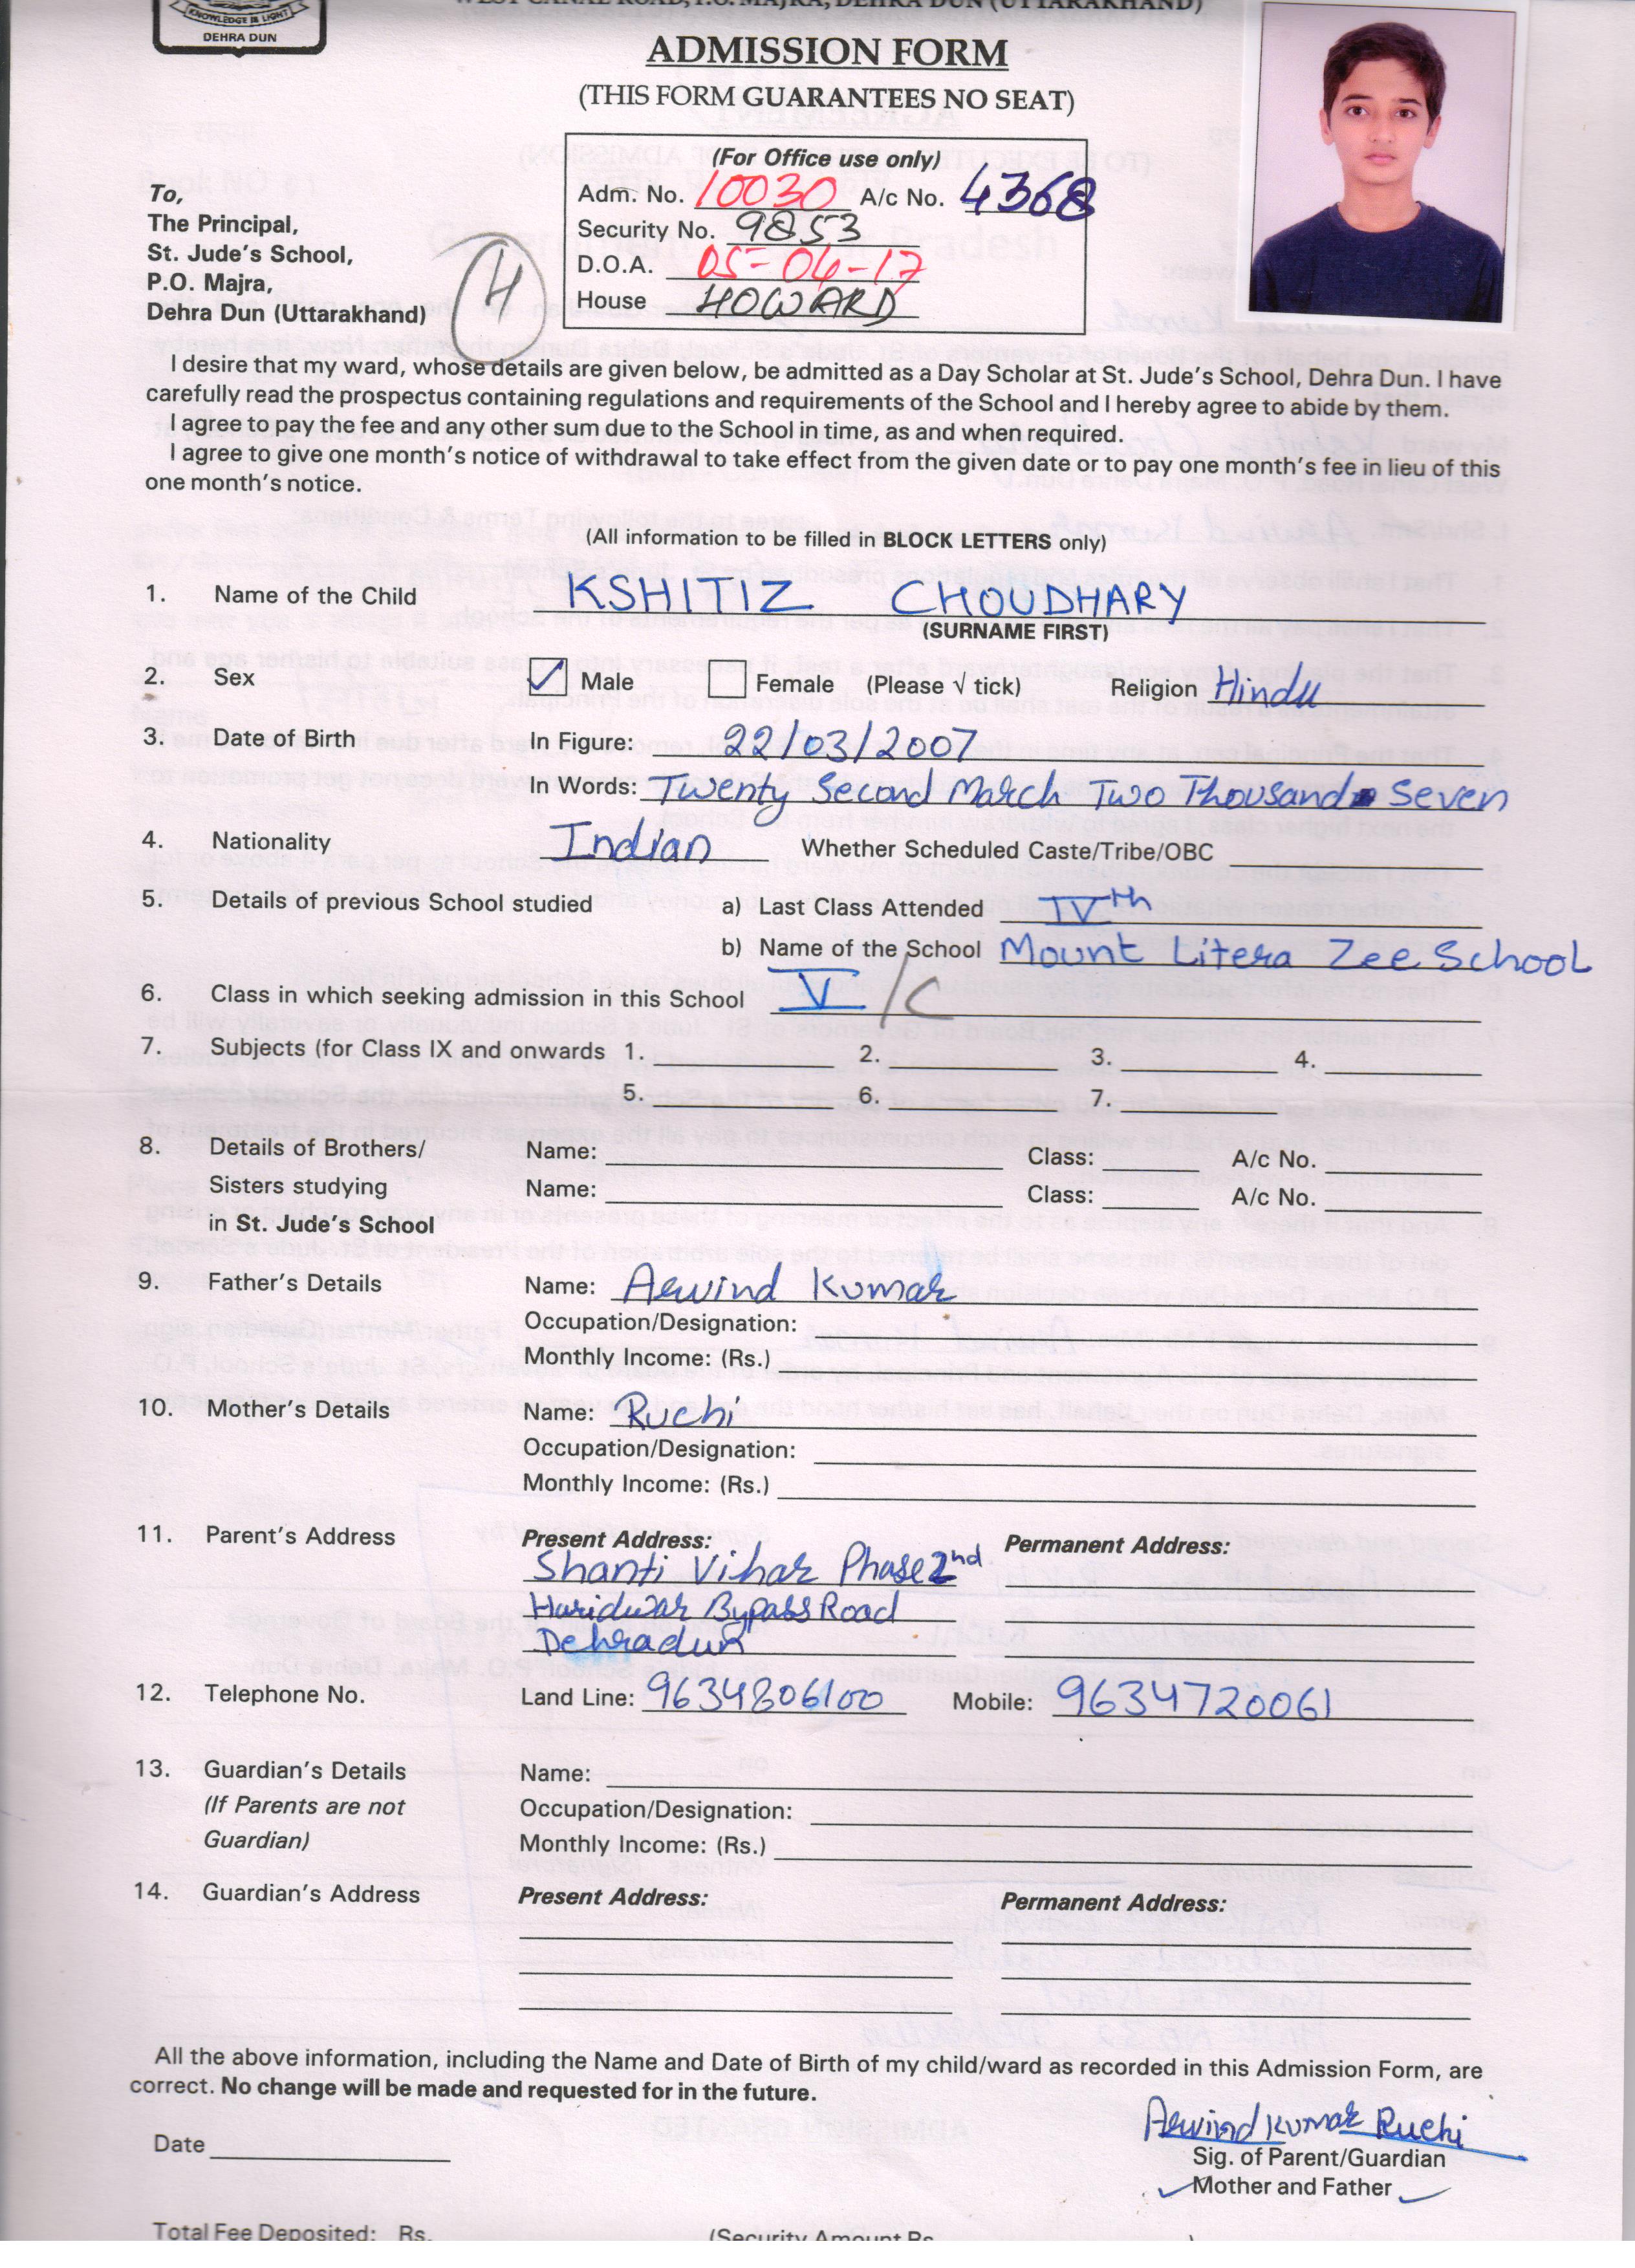 KNOWLEDGE IS LIGHT
DEHRA DUN
WEST CANAL ROAD, P.O. MAJRA, DEHRA DUN (UTTARAKHAND)
ADMISSION FORM
(THIS FORM GUARANTEES NO SEAT)
(For Office use only)
Adm. No. 10030 A/c No. 4368
Security No. 9853
D.O.A. 05-04-17
House HOWARD
To,
The Principal,
St. Jude's School,
P.O. Majra,
Dehra Dun (Uttarakhand)
H
I desire that my ward, whose details are given below, be admitted as a Day Scholar at St. Jude's School, Dehra Dun. I have
carefully read the prospectus containing regulations and requirements of the School and I hereby agree to abide by them.
I agree to pay the fee and any other sum due to the School in time, as and when required.
I agree to give one month's notice of withdrawal to take effect from the given date or to pay one month's fee in lieu of this
one month's notice.
(All information to be filled in BLOCK LETTERS only)
1. Name of the Child KSHITIZ CHOUDHARY
(SURNAME FIRST)
2. Sex ✓ Male Female (Please √ tick) Religion Hindu
3. Date of Birth In Figure: 22/03/2007
In Words: Twenty Second March Two Thousand Seven
4. Nationality Indian Whether Scheduled Caste/Tribe/OBC
5. Details of previous School studied a) Last Class Attended IVth
b) Name of the School Mount Litera Zee School
6. Class in which seeking admission in this School V/C
7. Subjects (for Class IX and onwards 1. 2. 3. 4.
5. 6. 7.
8. Details of Brothers/ Name: Class: A/c No.
Sisters studying Name: Class: A/c No.
in St. Jude's School
9. Father's Details Name: Arwind Kumar
Occupation/Designation:
Monthly Income: (Rs.)
10. Mother's Details Name: Ruchi
Occupation/Designation:
Monthly Income: (Rs.)
11. Parent's Address Present Address: Permanent Address:
Shanti Vihar Phase 2nd
Haridwar Bypass Road
Dehradun
12. Telephone No. Land Line: 9634806100 Mobile: 9634720061
13. Guardian's Details Name:
(If Parents are not Occupation/Designation:
Guardian) Monthly Income: (Rs.)
14. Guardian's Address Present Address: Permanent Address:
All the above information, including the Name and Date of Birth of my child/ward as recorded in this Admission Form, are
correct. No change will be made and requested for in the future.
Arwind Kumar Ruchi
Date
Sig. of Parent/Guardian
✓ Mother and Father ✓
Total Fee Deposited: Rs. (Security Amount Rs. )